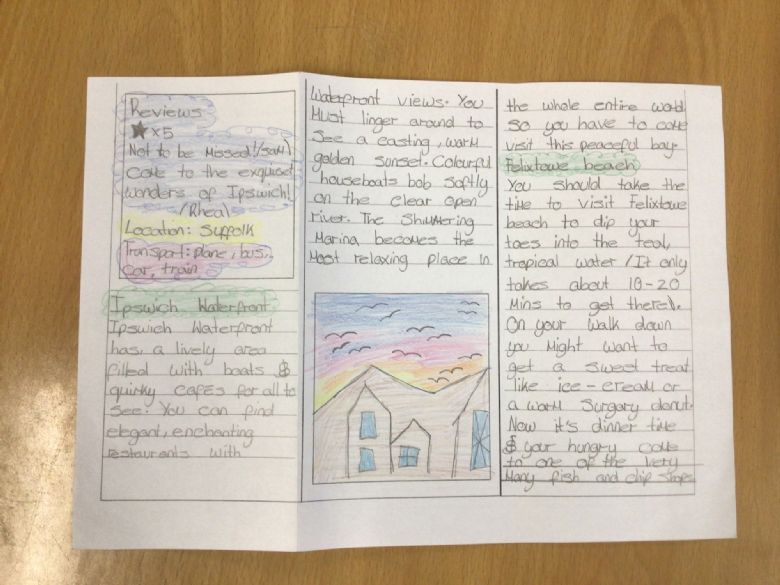 Reviews
★x5
Not to be missed! (Sam)
Come to the exquiset
wonders of Ipswich!
(Rhea)
Location: Suffolk
Transport: plane, bus,
car, train
Ipswich Waterfront
Ipswich Waterfront
has, a lively area
filled with boats &
quirky cafes for all to
see. You can find
elegant, enchanting
restaurants with
Waterfront views. You
must linger around to
see a casting, warm
golden sunset. Colourful
houseboats bob softly
on the clear open
river. The shimmering
Marina becomes the
most relaxing place in
the whole entire world
so you have to come
visit this peaceful bay.
Felixtowe beach
You should take the
time to visit Felixtowe
beach to dip your
toes into the teal,
tropical water (It only
takes about 10-20
mins to get there).
On your walk down
you might want to
get a sweet treat
like ice-cream or
a warm surgary donut.
Now it's dinner time
& your hungry come
to one of the very
many fish and chip shops